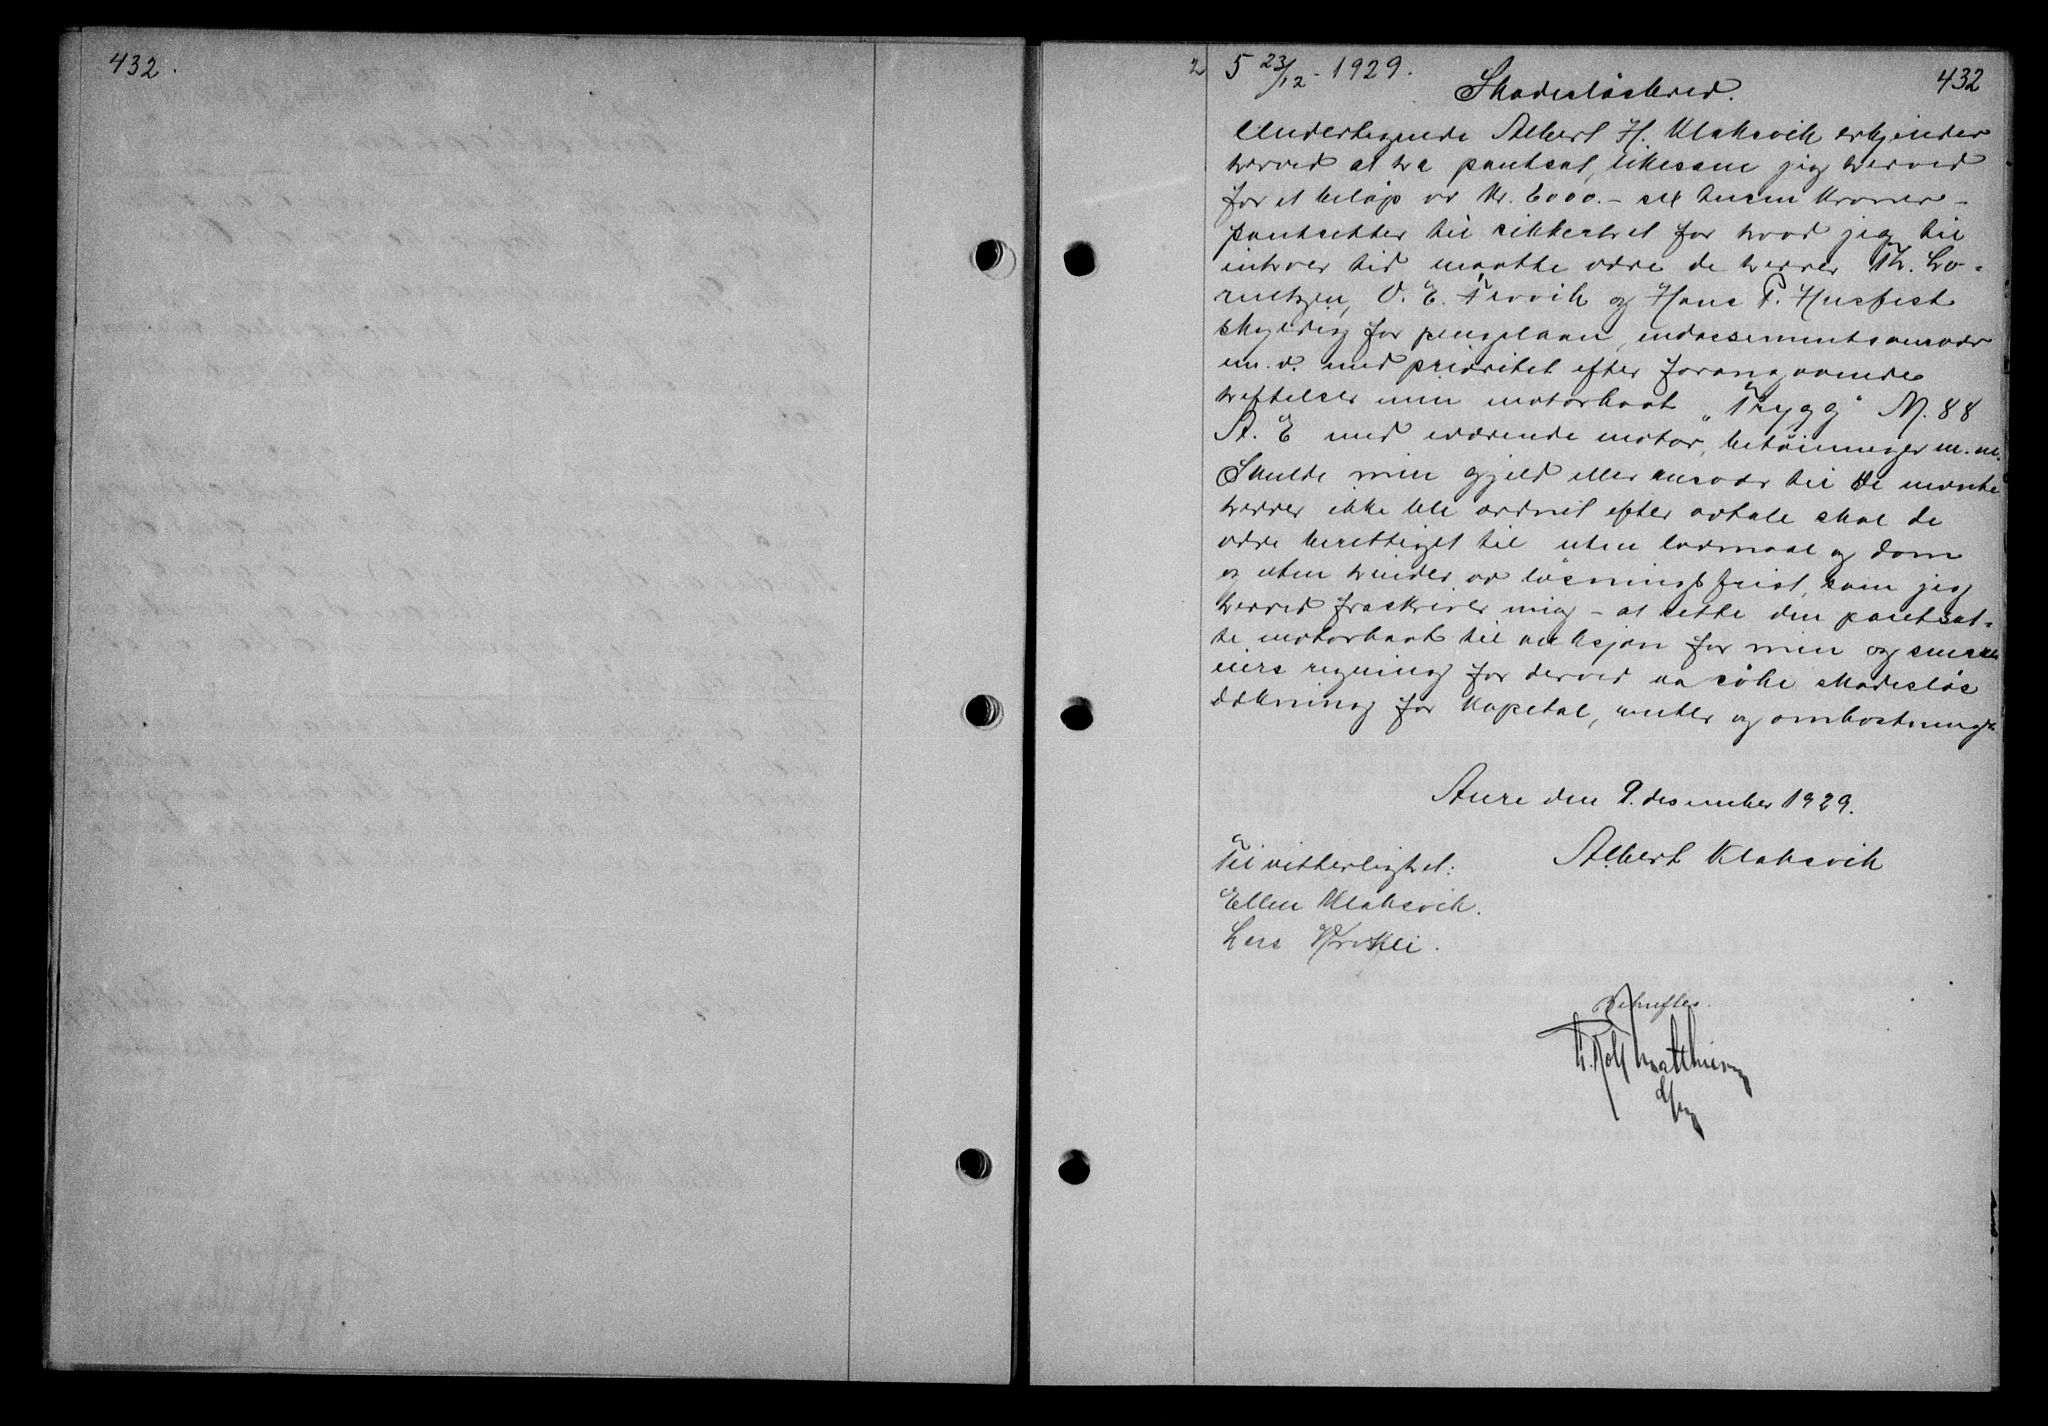 432.
2 5 23/12 - 1929.
432
Skadesløsbrev.
Undertegnede Albert H. Klaksvik erkjender
herved at ha pantsat, likesom jeg herved
for et beløp av kr. 6000.- sex tusen kroner -
pantsetter til sikkerhet for hvad jeg til
enhver tid maatte være de herrer Th. Lo-
rentzen, O. E. Tevik og Hans P. Husfest
skyldig for pengelaan, endossementsansvar
m. v. med prioritet efter foranngaaende
heftelser min motorbaat "Trygg" M. 88
A. E med iværende motor, betøininger m. m.
Skulde min gjeld eller ansvar til de nevnte
herrer ikke bli ordnet efter avtale skal de
være berettiget til uten lovmaal og dom
og uten hinder av løsningsfrist, som jeg
herved fraskriver mig - at sette den pantsat-
te motorbaat til auksjon for min og
eiers regning for derved aa søke skadesløs
dækning for kapital, renter og omkostninger.
Aure den 9. desember 1929.
Albert Klaksvik
Til vitterlighet:
Ellen Klaksvik.
Lars
Bekreftes.